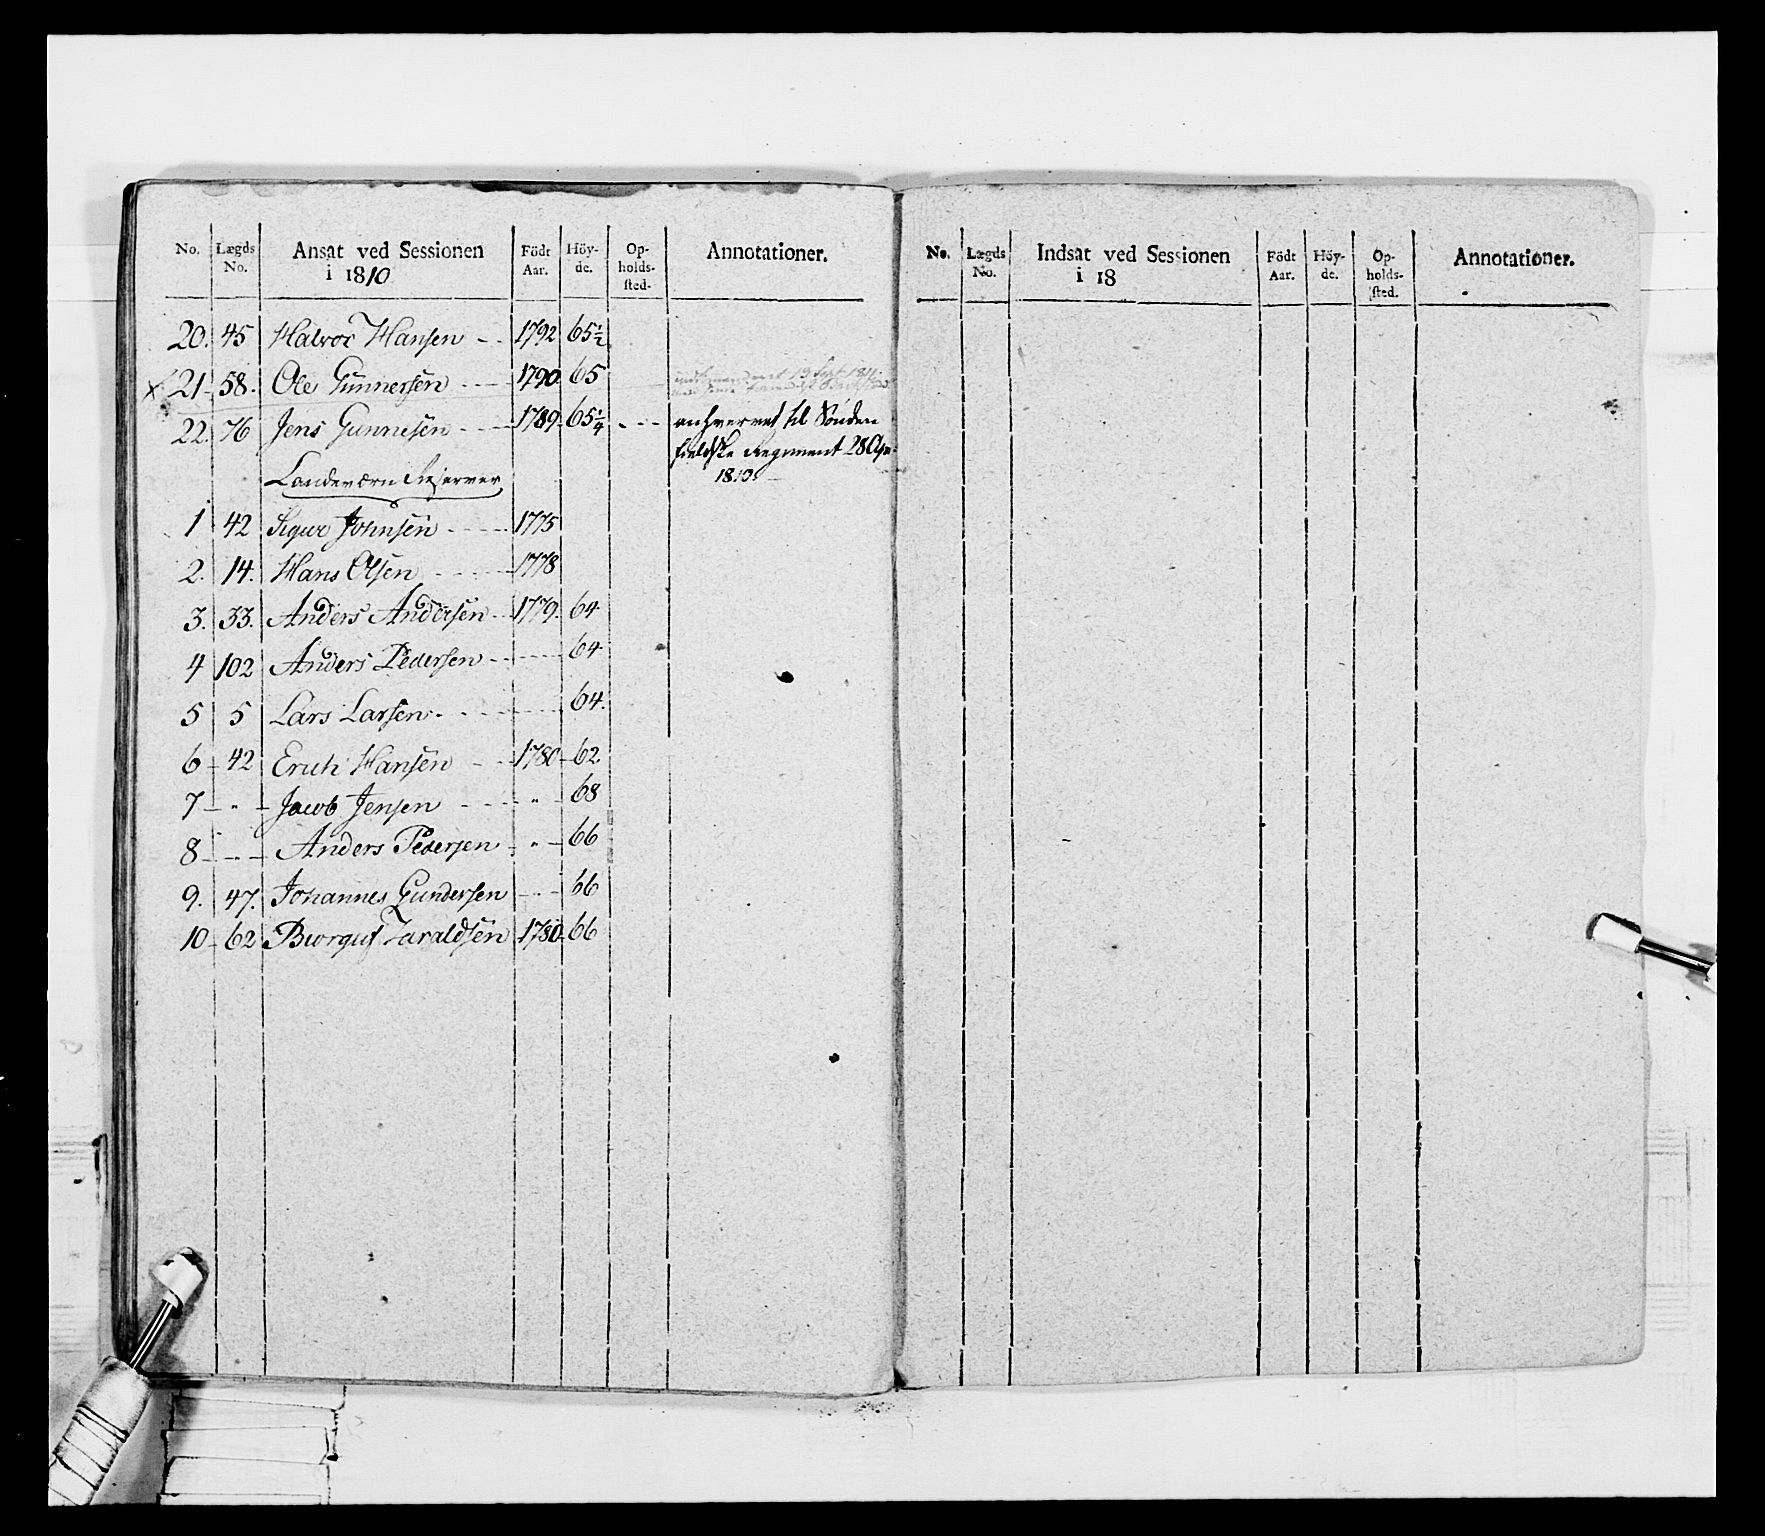 No. Lægds No. Ansat ved Sessionen i 1810 Födt Aar. Höy-de. Op-holds-sted. Annotationer.
20. 45 Halvor Hansen 1792 65½
x 21 58. Ole Gunnersen 1790 65 13 Sept 1811
22. 76 Jens Gunnesen 1789 65¼ til Sønden
fieldske Regiment 28
1810
Landeværn Reserver
1 42 Sigur Johnsen 1775
2. 14. Hans Olsen 1778
3. 33. Anders Andersen 1779. 64
4 102 Anders Pedersen 64
5 5 Lars Larsen 64.
6 42 Erich Hansen 1780 62
7 " Jacob Jensen " 68
8 " Anders Pedersen " 66
9. 47. Johannes Gundersen 66
10 62 Taraldsen 1780 66
No. Lægds No. Indsat ved Sessionen i 18 Födt Aar. Höy-de. Op-holds-sted. Annotationer.